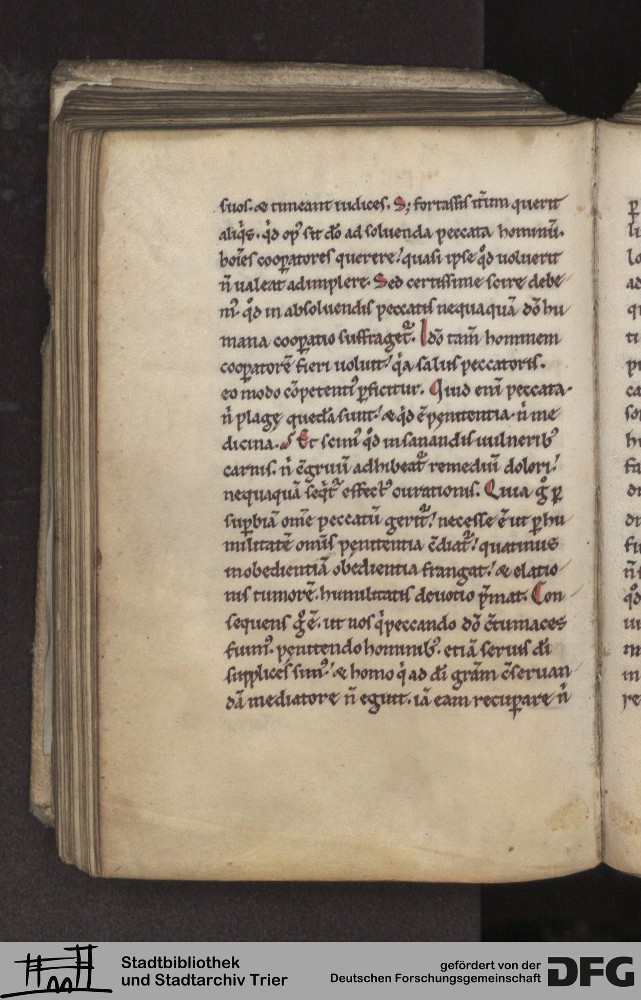 suos. & timeant iudices. S; fortassis itm̄ querit
aliq̇s. qd̄ op᷒ sit dō ad soluenda peccata hominū.
hoīes coop̲atores querere? quasi ipse qd̄ uoluerit
n̄ ualeat adimplere. Sed certissime scire debe
m᷒. qd̄ in absoluendis peccatis nequaquā dō hu
mana coop̲atio suffraget᷑. Idō tam̄ hominem
coop̲atorē fieri uoluit. q̇a salus peccatoris.
eo modo cōpetenti᷒ p̲ficitur. Quid eni᷒ peccata.
n̄ plagę quedā sunt? & qd̄ ē pęnitentia. n̄ me
dicina. Et scim᷒ qd̄ in sanandis uulnerib᷒
carnis. n̄ c̄gruū adhibeat᷑ remediū dolori?
nequaquā seq̇t᷑ effect᷒ curationis. Quia g̊ p̲
sup̲biā om̄e peccatū gerit᷑? necesse ē ut p̲ hu
militatē om̄is pęnitentia c̄diat᷑? quatinus
inobedientiā obędientia frangat? & elatio
nis tumorē. humilitatis deuotio p̄mat. Con
sequens g̊ ē. ut nos q̇ peccando dō c̄tumaces
fuim᷒. pęnitendo hominib᷒. etiā seruis dī
supplices sim᷒? & homo q̇ ad dī gr̄am c̄seruan
dā mediatore n̄ eguit. iā eam recup̲are n̄
Stadtbibliothek
und Stadtarchiv Trier
gefördert von der
Deutschen Forschungsgemeinschaft
DFG